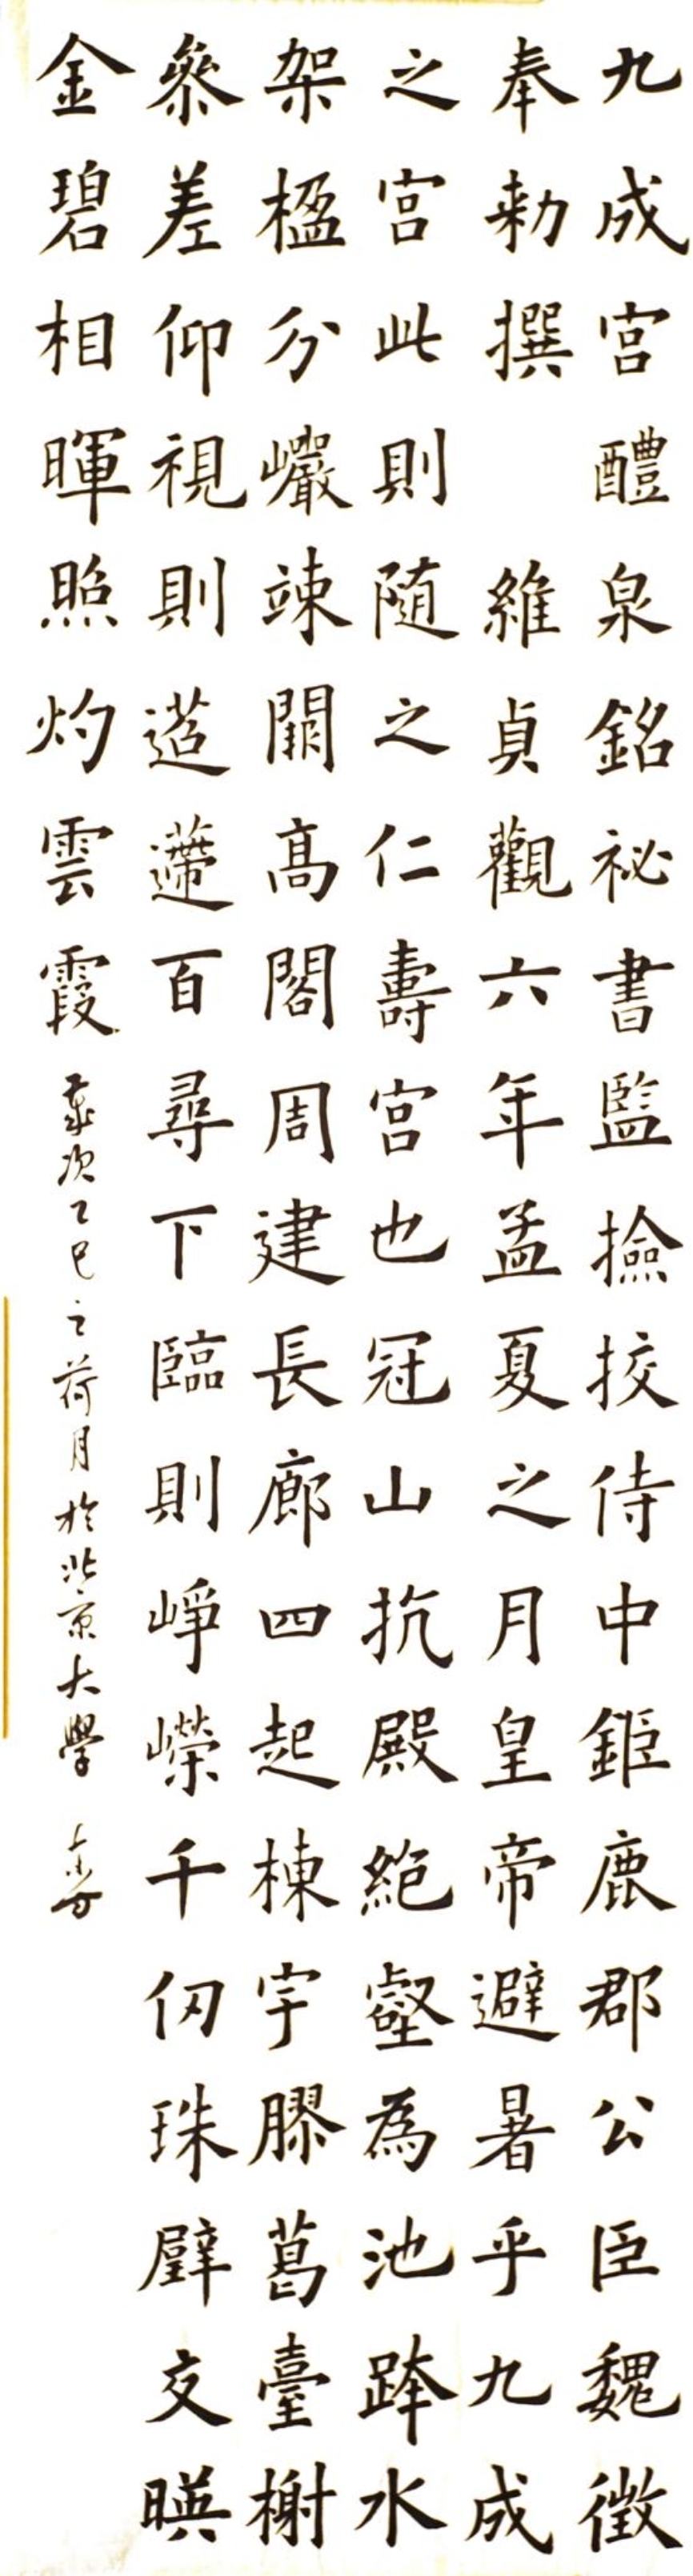 九成宮醴泉銘祕書監撿挍侍中鉅鹿郡公臣魏徵
奉勑撰 維貞觀六年孟夏之月皇帝避暑乎九成
之宮此則随之仁壽宮也冠山抗殿絶壑為池跨水
架楹分巖竦闕髙閣周建長廊四起棟宇膠葛臺榭
參差仰視則迢遰百尋下臨則崢嶸千仞珠壁交暎
金碧相暉照灼雲霞
歲次乙巳之荷月於北京大學